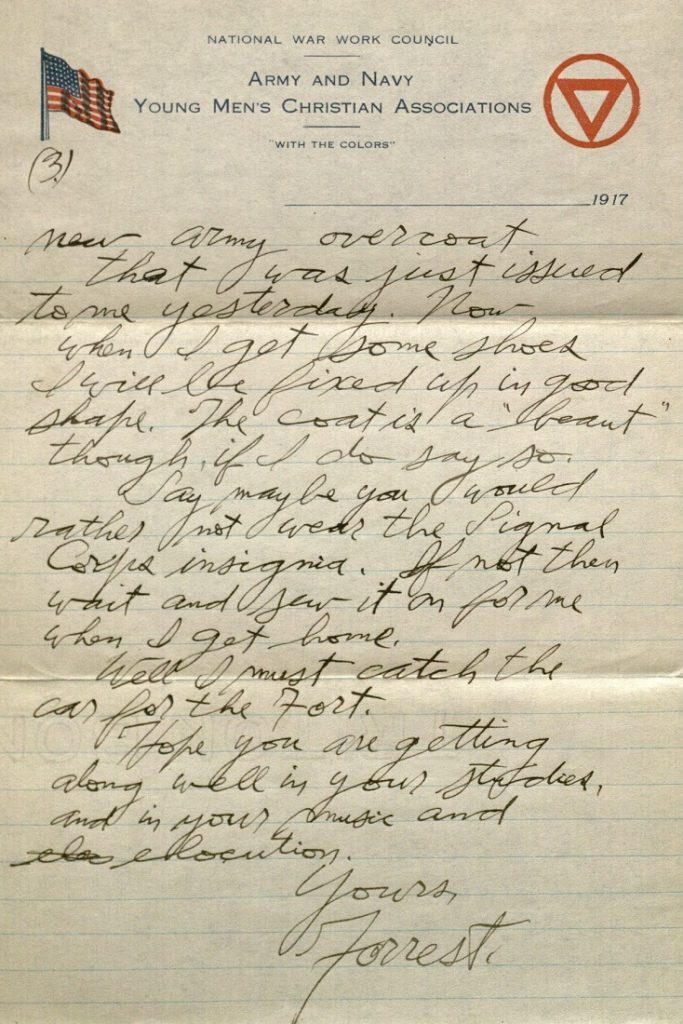 NATIONAL WAR WORK COUNCIL
ARMY AND NAVY
YOUNG MEN'S CHRISTIAN ASSOCIATIONS
"WITH THE COLORS"
(3)
1917
new army overcoat
that was just issued
to me yesterday. Now
when I get some shoes
I will be fixed up in good
shape. The coat is a "beaut"
though, if I do say so.
Say maybe you would
rather not wear the Signal
Corps insignia. If not then
wait and sew it on for me
when I get home.
Well I must catch the
car for the Fort.
Hope you are getting
along well in your studies,
and in your music and
elocution.
Yours,
Forrest.